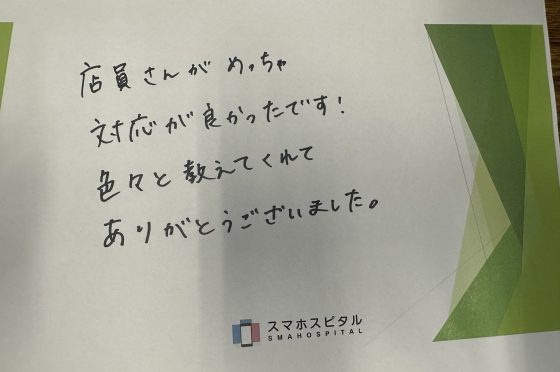 店員さんがめっちゃ
対応が良かったです!
色々と教えてくれて
ありがとうございました。
スマホスピタル
SMAHOSPITAL